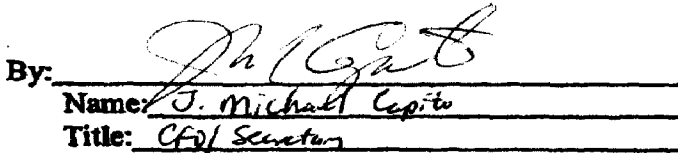 By:
Name: J. Michael Capito
Title: CFO/ Secretary